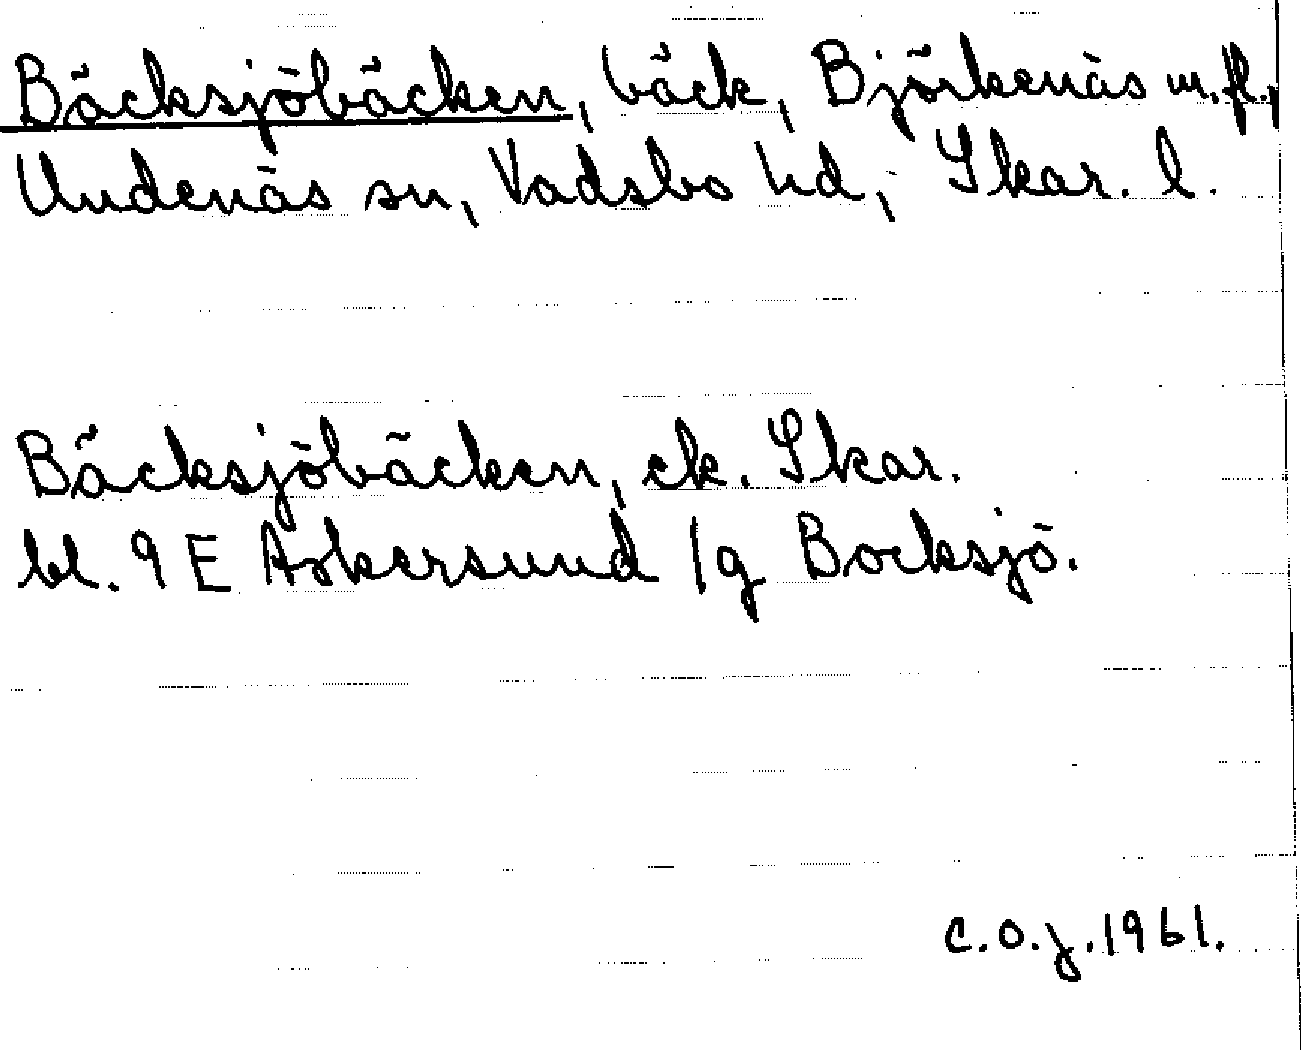 Bäcksjöbäcken, bäck, Björkenäs m.fl.,
Undenäs sn, Vadsbo hd, Skar. l.
Bäcksjöbäcken, ek. Skar.
bl. 9 E Askersund 1g Bocksjö.
C.O.J. 1961.